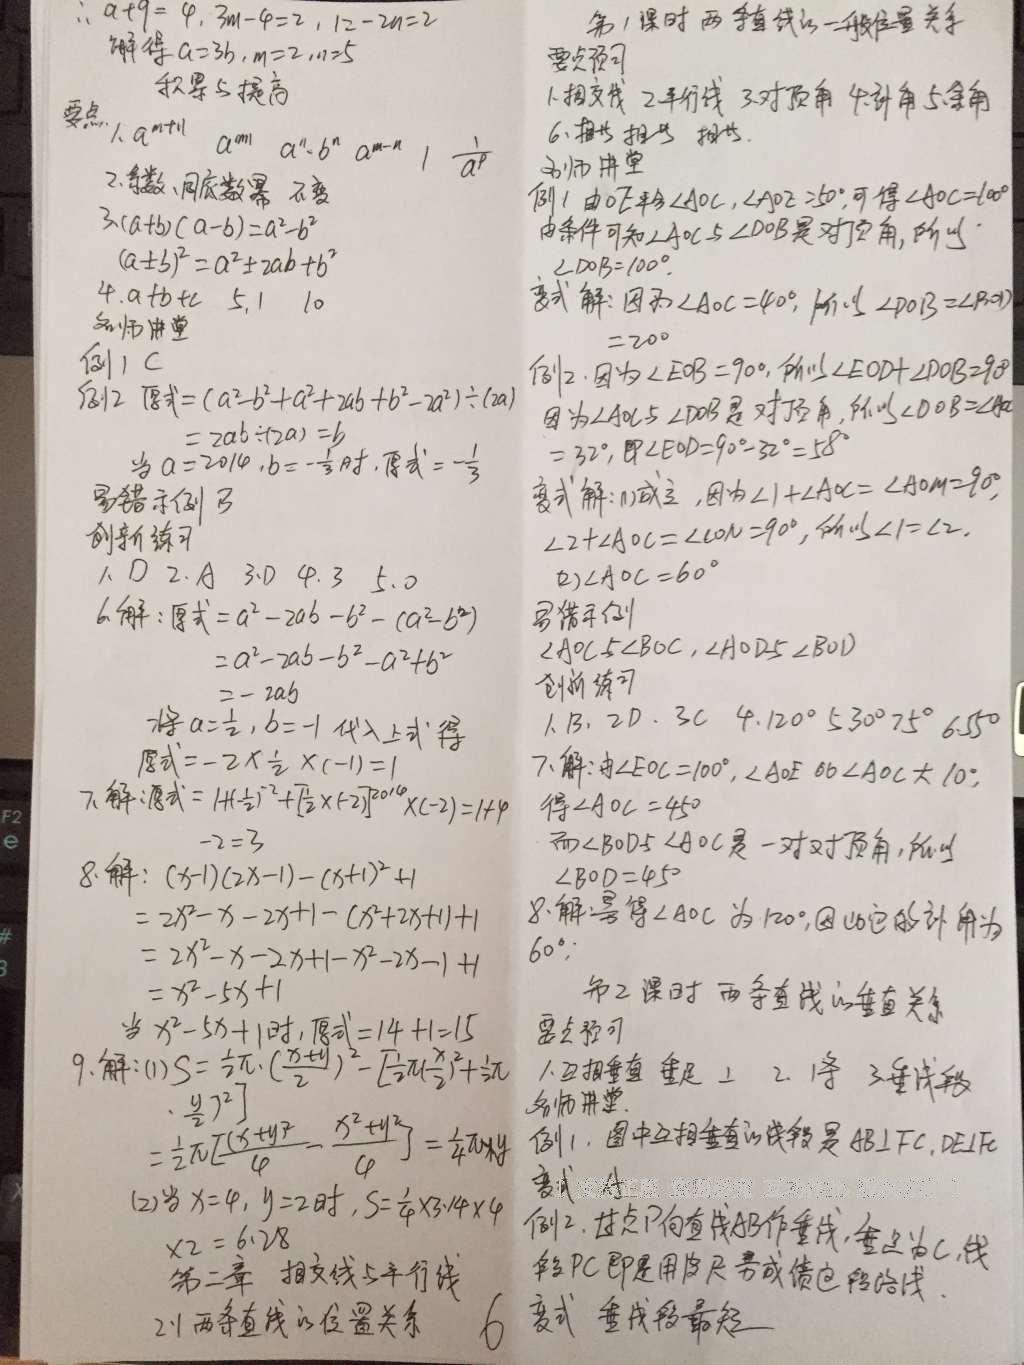 ∴ a+9=4, 3m-4=2, 12-2n=2
解得 a=3b, m=2, n=5
积累与提高
要点
1. a^(m+n) a^(mn) aⁿ·bⁿ a^(m-n) 1 1/a^p
2. 系数、同底数幂 不变
3. (a+b)(a-b)=a²-b²
(a±b)²=a²±2ab+b²
4. a+b+c 5,1 10
名师讲堂
例1 C
例2 原式=(a²-b²+a²+2ab+b²-2a²)÷(2a)
=2ab÷(2a)=b
当a=2014,b=-1/3时,原式=-1/3
易错示例 B
创新练习
1. D 2. A 3. D 4. 3 5. 0
6. 解:原式=a²-2ab-b²-(a²-b²)
=a²-2ab-b²-a²+b²
=-2ab
将a=1/2,b=-1代入上式得
原式=-2×1/2×(-1)=1
7. 解:原式=1+(-1/2)^-2+[1/2×(-2)]^2014×(-2)=1+4
-2=3
8. 解:(x-1)(2x-1)-(x+1)²+1
=2x²-x-2x+1-(x²+2x+1)+1
=2x²-x-2x+1-x²-2x-1+1
=x²-5x+1
当x²-5x+1时,原式=14+1=15
9. 解:(1)S=1/2π·((x+y)/2)²-[1/2π(x/2)²+1/2π
·(y/2)²]
=1/2π[(x+y)²/4-(x²+y²)/4]=1/4πxy
(2)当x=4,y=2时,S=1/4×3.14×4
×2=6.28
第二章 相交线与平行线
2.1 两条直线的位置关系
6
第1课时 两条直线的一般位置关系
要点预习
1. 相交线 2. 平行线 3. 对顶角 4. 补角 5. 余角
6. 相等 相等 相等.
名师讲堂
例1 由OE平分∠AOC,∠AOE=50°,可得∠AOC=100°
由条件可知∠AOC与∠DOB是对顶角,所以
∠DOB=100°.
变式 解:因为∠AOC=40°,所以∠DOB=∠BOD
=20°
例2. 因为∠EOB=90°,所以∠EOD+∠DOB=90°
因为∠AOC与∠DOB是对顶角,所以∠DOB=∠AOC
=32°,即∠EOD=90°-32°=58°
变式 解:(1)成立,因为∠1+∠AOC=∠AOM=90°,
∠2+∠AOC=∠CON=90°,所以∠1=∠2.
(2)∠AOC=60°
易错示例
∠AOC与∠BOC,∠AOD与∠BOD
创新练习
1. B. 2D. 3C 4. 120° 5. 30° 75° 6. 55°
7. 解:由∠EOC=100°,∠AOE比∠AOC大10°,
得∠AOC=45°
而∠BOD与∠AOC是一对对顶角,所以
∠BOD=45°
8. 解:易得∠AOC为120°,因此它的补角为
60°;
第2课时 两条直线的垂直关系
要点预习
1. 互相垂直 垂足 ⊥ 2. 1条 3. 垂线段
名师讲堂.
例1. 图中互相垂直的线段是AB⊥FC,DE⊥FC
变式 A
例2. 过点P向直线AB作垂线,垂足为C,线
段PC即是
变式 垂线段最短